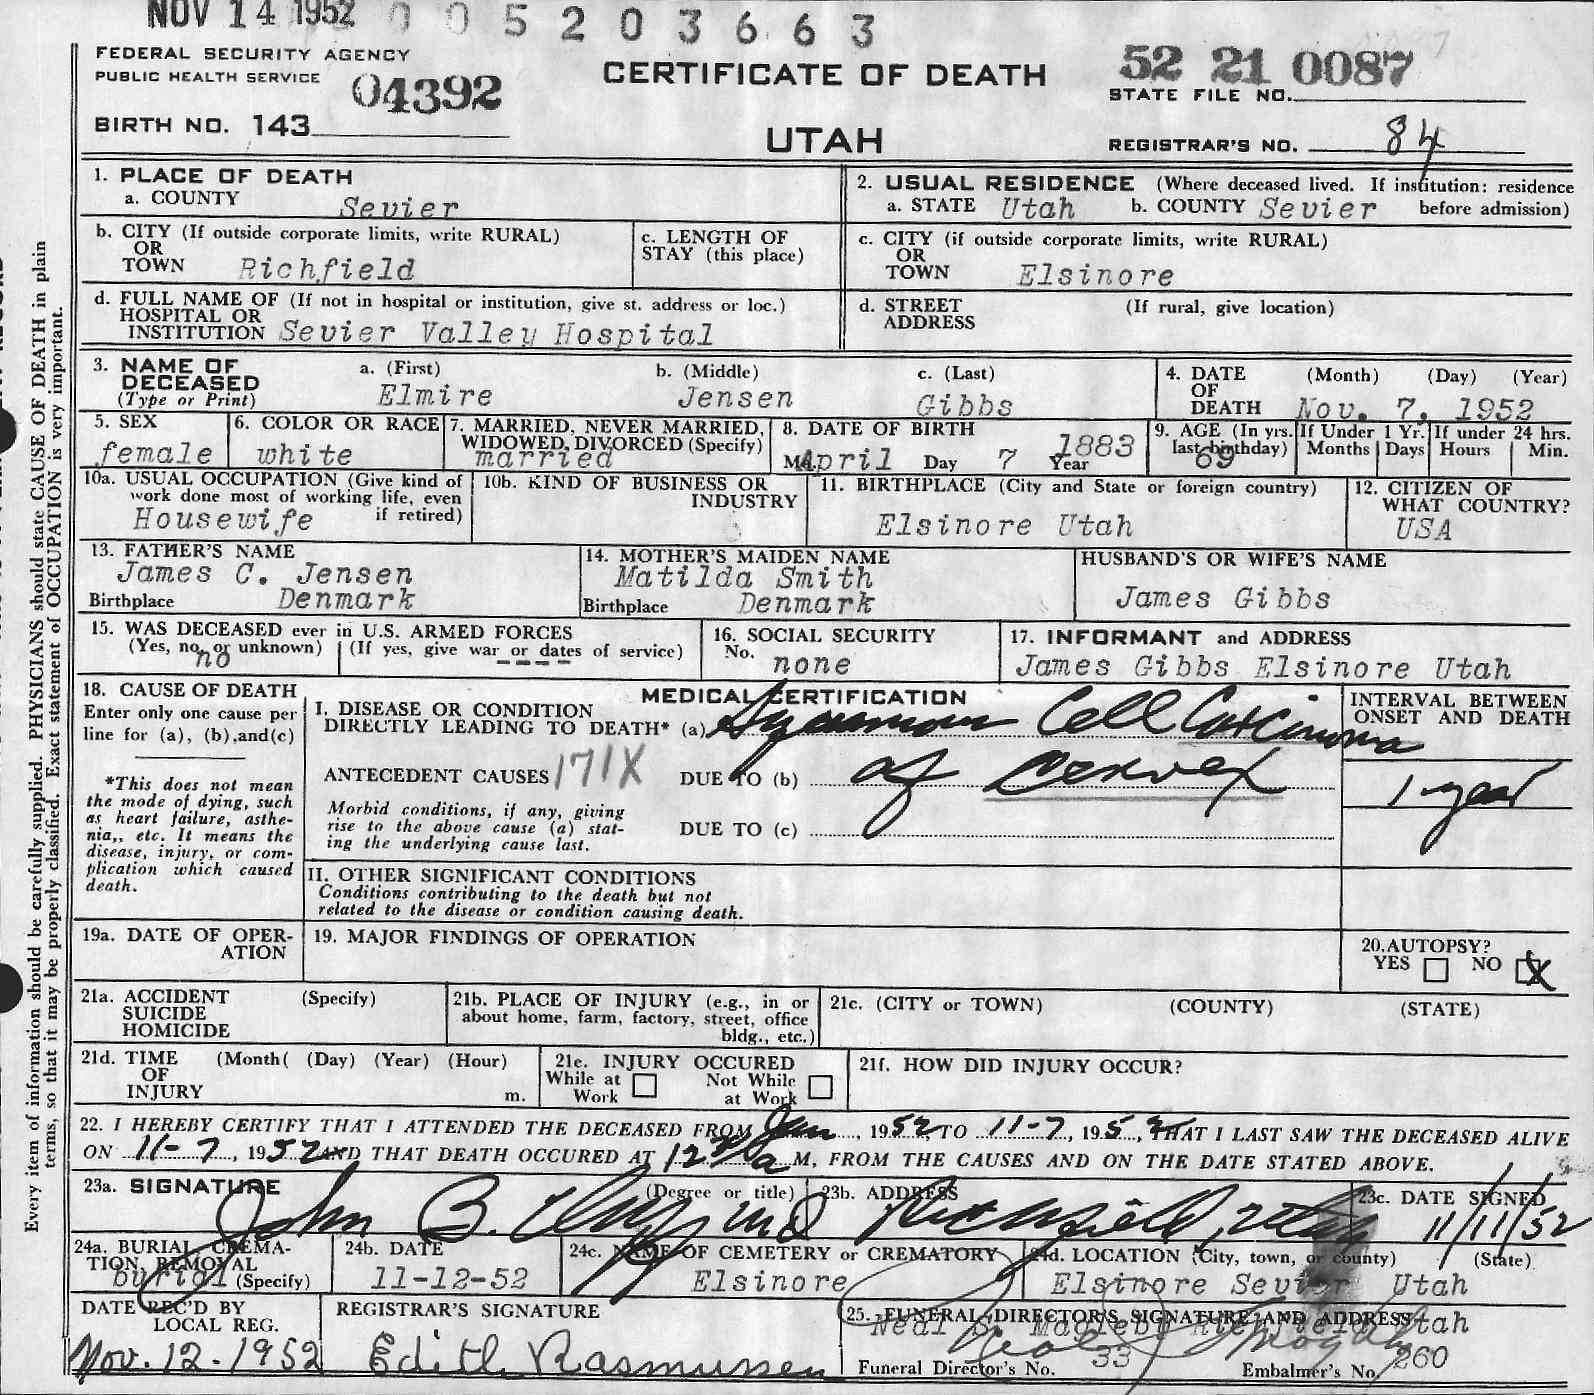 NOV 14 1952 0 0 5 2 0 3 6 6 3
FEDERAL SECURITY AGENCY
PUBLIC HEALTH SERVICE
04392
BIRTH NO. 143
CERTIFICATE OF DEATH
UTAH
52 21 0087
STATE FILE NO.
REGISTRAR'S NO. 84
1. PLACE OF DEATH
a. COUNTY Sevier
2. USUAL RESIDENCE (Where deceased lived. If institution: residence before admission)
a. STATE Utah b. COUNTY Sevier
b. CITY (If outside corporate limits, write RURAL)
OR
TOWN Richfield
c. LENGTH OF
STAY (this place)
c. CITY (if outside corporate limits, write RURAL)
OR
TOWN Elsinore
d. FULL NAME OF (If not in hospital or institution, give st. address or loc.)
HOSPITAL OR
INSTITUTION Sevier Valley Hospital
d. STREET (If rural, give location)
ADDRESS
3. NAME OF
DECEASED
(Type or Print)
a. (First) b. (Middle) c. (Last)
Elmire Jensen Gibbs
4. DATE (Month) (Day) (Year)
OF
DEATH Nov. 7, 1952
5. SEX
female
6. COLOR OR RACE
white
7. MARRIED, NEVER MARRIED,
WIDOWED, DIVORCED (Specify)
married
8. DATE OF BIRTH
April Day 7 Year 1883
9. AGE (In yrs.
last birthday)
69
If Under 1 Yr.
Months Days
If under 24 hrs.
Hours Min.
10a. USUAL OCCUPATION (Give kind of
work done most of working life, even
if retired)
Housewife
10b. KIND OF BUSINESS OR
INDUSTRY
11. BIRTHPLACE (City and State or foreign country)
Elsinore Utah
12. CITIZEN OF
WHAT COUNTRY?
USA
13. FATHER'S NAME
James C. Jensen
Birthplace Denmark
14. MOTHER'S MAIDEN NAME
Matilda Smith
Birthplace Denmark
HUSBAND'S OR WIFE'S NAME
James Gibbs
15. WAS DECEASED ever in U.S. ARMED FORCES
(Yes, no, or unknown) (If yes, give war or dates of service)
no ----
16. SOCIAL SECURITY
No. none
17. INFORMANT and ADDRESS
James Gibbs Elsinore Utah
18. CAUSE OF DEATH
Enter only one cause per
line for (a), (b), and(c)
*This does not mean
the mode of dying, such
as heart failure, asthe-
nia,, etc. It means the
disease, injury, or com-
plication which caused
death.
MEDICAL CERTIFICATION
I. DISEASE OR CONDITION
DIRECTLY LEADING TO DEATH* (a) Squamous Cell Carcinoma
ANTECEDENT CAUSES 171X DUE TO (b) of Cervex
Morbid conditions, if any, giving
rise to the above cause (a) stat-
ing the underlying cause last.
DUE TO (c)
INTERVAL BETWEEN
ONSET AND DEATH
1 year
II. OTHER SIGNIFICANT CONDITIONS
Conditions contributing to the death but not
related to the disease or condition causing death.
19a. DATE OF OPER-
ATION
19. MAJOR FINDINGS OF OPERATION
20. AUTOPSY?
YES NO X
21a. ACCIDENT (Specify)
SUICIDE
HOMICIDE
21b. PLACE OF INJURY (e.g., in or
about home, farm, factory, street, office
bldg., etc.)
21c. (CITY or TOWN) (COUNTY) (STATE)
21d. TIME (Month( (Day) (Year) (Hour)
OF
INJURY m.
21e. INJURY OCCURED
While at Work Not While at Work
21f. HOW DID INJURY OCCUR?
22. I HEREBY CERTIFY THAT I ATTENDED THE DECEASED FROM Jan, 1952, TO 11-7, 1952, THAT I LAST SAW THE DECEASED ALIVE
ON 11-7, 1952 AND THAT DEATH OCCURED AT 12 a M, FROM THE CAUSES AND ON THE DATE STATED ABOVE.
23a. SIGNATURE (Degree or title)
John B. md
23b. ADDRESS
Richfield, Utah
23c. DATE SIGNED
11/11/52
24a. BURIAL, CREMA-
TION, REMOVAL
(Specify)
burial
24b. DATE
11-12-52
24c. NAME OF CEMETERY or CREMATORY
Elsinore
24d. LOCATION (City, town, or county) (State)
Elsinore Sevier Utah
DATE REC'D BY
LOCAL REG.
Nov. 12-1952
REGISTRAR'S SIGNATURE
Edith Rasmussen
25. FUNERAL DIRECTOR'S SIGNATURE AND ADDRESS
Neal S. Magleby Richfield Utah
Funeral Director's No. 33 Embalmer's No. 260
Every item of information should be carefully supplied. PHYSICIANS should state CAUSE OF DEATH in plain
terms, so that it may be properly classified. Exact statement of OCCUPATION is very important.